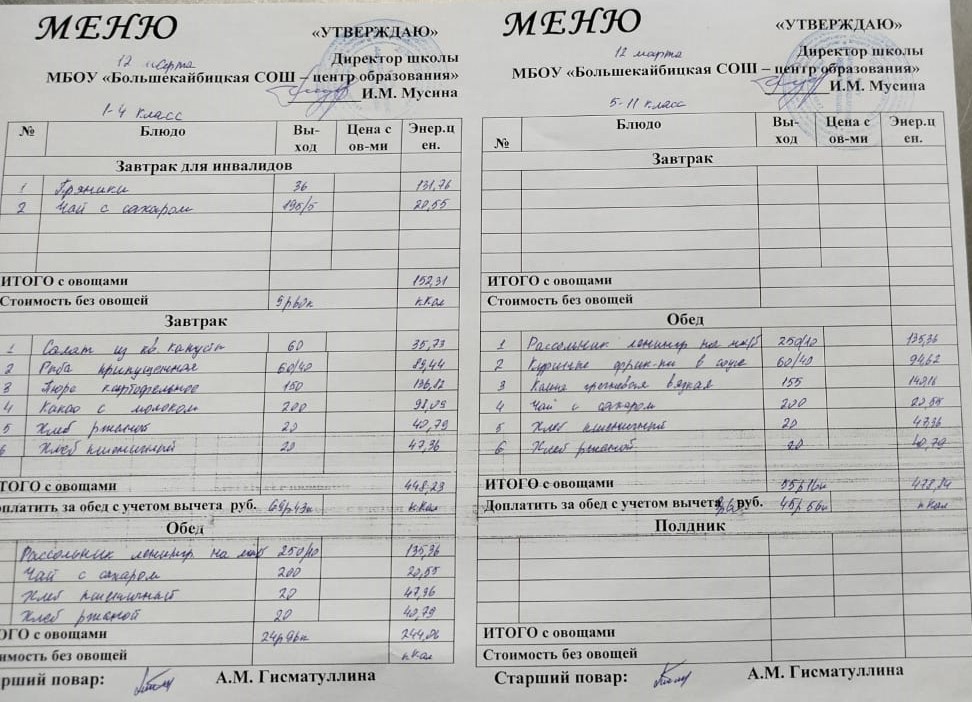 МЕНЮ
«УТВЕРЖДАЮ»
12 марта
Директор школы
МБОУ «Большекайбицкая СОШ – центр образования»
И.М. Мусина
1-4 класс
№ Блюдо Вы-ход Цена с ов-ми Энер.ц ен.
Завтрак для инвалидов
1 Пряники 36 131,76
2 Чай с сахаром 195/5 20,55
ИТОГО с овощами 152,31
Стоимость без овощей 9р60к кКал
Завтрак
1 Салат из кв. капусты 60 35,73
2 Рыба припущенная 60/40 89,44
3 Пюре картофельное 150 136,82
4 Какао с молоком 200 98,09
5 Хлеб ржаной 20 40,79
6 Хлеб пшеничный 20 47,36
ИТОГО с овощами 448,23
Доплатить за обед с учетом вычета руб. 69р43к кКал
Обед
Рассольник ленингр. на м/кб 250/10 135,36
Чай с сахаром 200 20,55
Хлеб пшеничный 20 47,36
Хлеб ржаной 20 40,79
ИТОГО с овощами 24р96к 244,06
Стоимость без овощей кКал
Старший повар: А.М. Гисматуллина
МЕНЮ
«УТВЕРЖДАЮ»
12 марта
Директор школы
МБОУ «Большекайбицкая СОШ – центр образования»
И.М. Мусина
5-11 класс
№ Блюдо Вы-ход Цена с ов-ми Энер.ц ен.
Завтрак
ИТОГО с овощами
Стоимость без овощей
Обед
1 Рассольник ленингр на м/кб 250/10 135,36
2 Куриные фрик-ки в соусе 60/40 94,62
3 Каша гречневая вязкая 155
4 Чай с сахаром 200 20,55
5 Хлеб пшеничный 20 47,36
6 Хлеб ржаной 20 40,79
ИТОГО с овощами 55р16к 478,84
Доплатить за обед с учетом вычета руб. 45р56к кКал
Полдник
ИТОГО с овощами
Стоимость без овощей
Старший повар: А.М. Гисматуллина